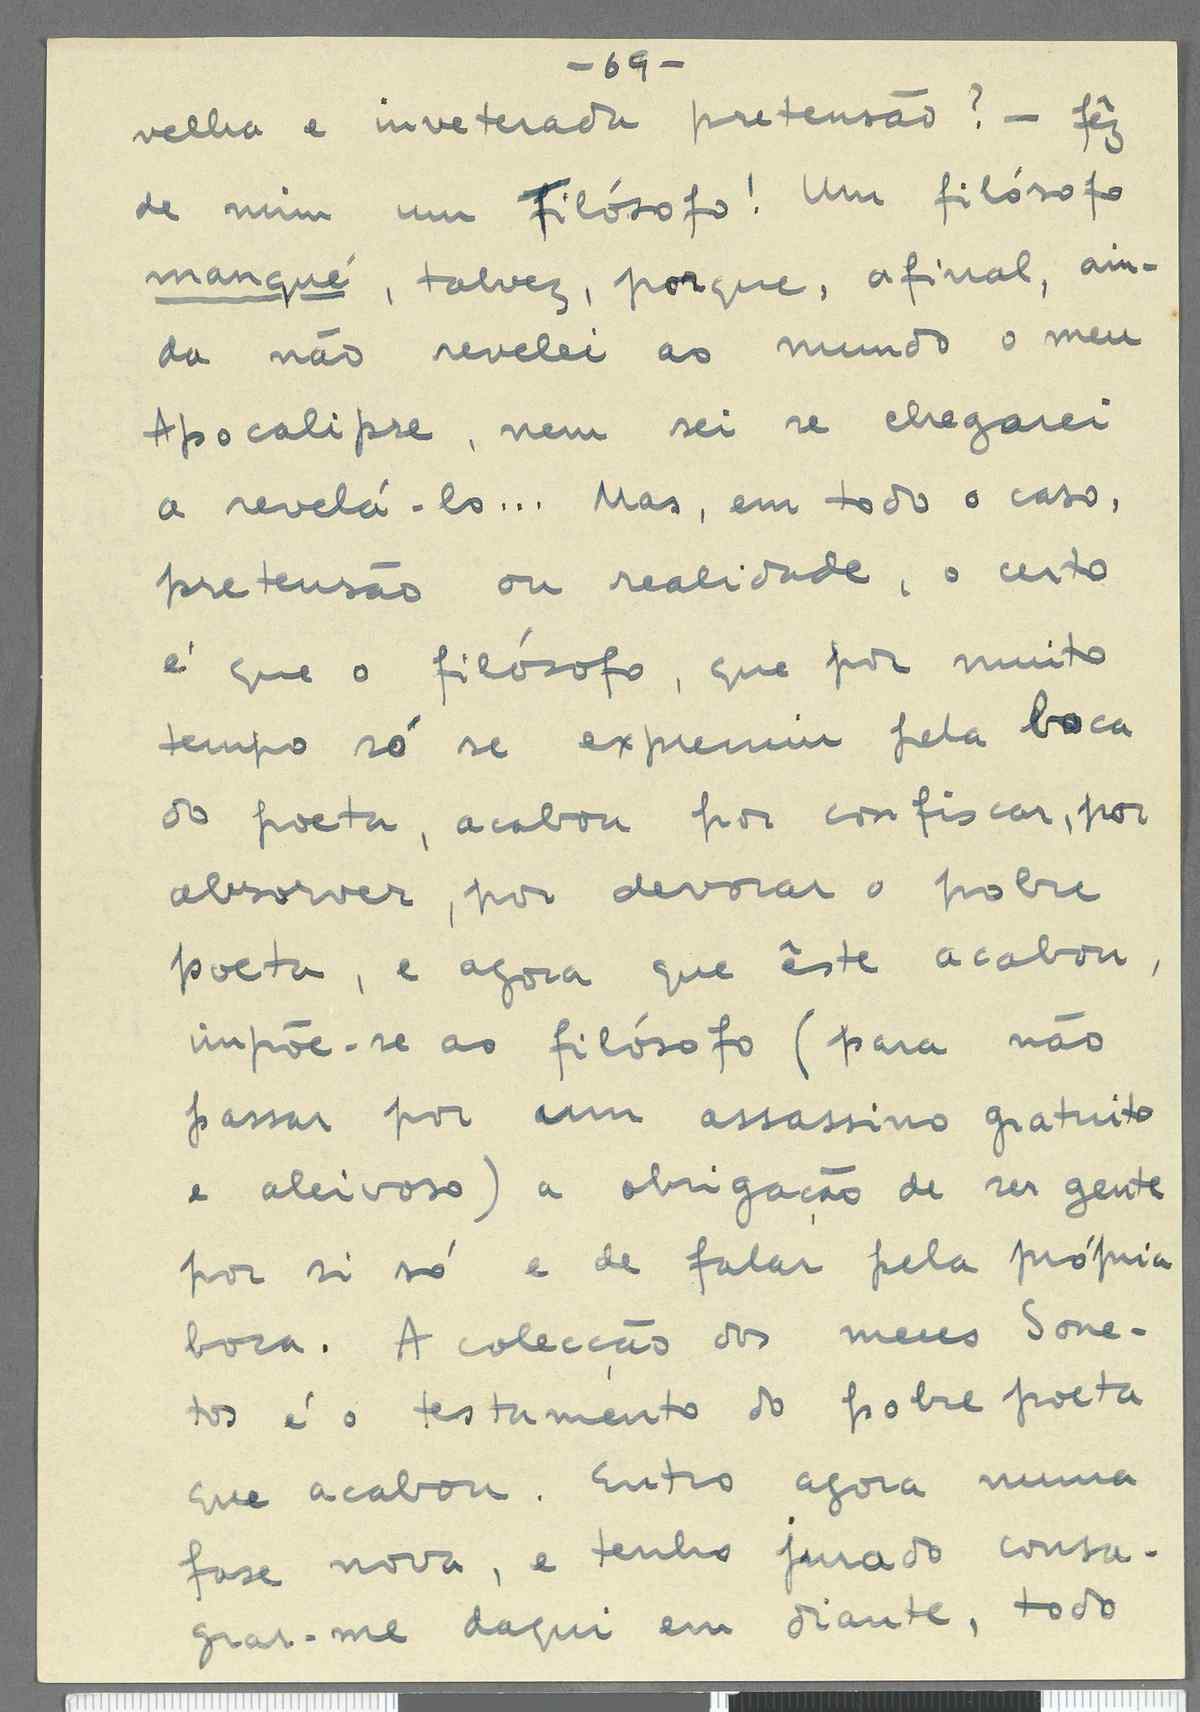 -69-
velha e inveterada pretensão? - fêz
de mim um filósofo! Um filósofo
manqué, talvez, porque, afinal, ain-
da não revelei ao mundo o meu
Apocalipse, nem sei se chegarei
a revelá-lo... Mas, em todo o caso,
pretensão ou realidade, o certo
é que o filósofo, que por muito
tempo só se expremiu pela boca
do poeta, acabou por confiscar, por
absorver, por devorar o pobre
poeta, e agora que êste acabou,
impõe-se ao filósofo (para não
passar por um assassino gratuito
e aleivoso) a obrigação de ser gente
por si só e de falar pela própria
boca. A colecção dos meus Sone-
tos é o testamento do pobre poeta
que acabou. Entro agora numa
fase nova, e tenho jurado consa-
grar-me daqui em diante, todo